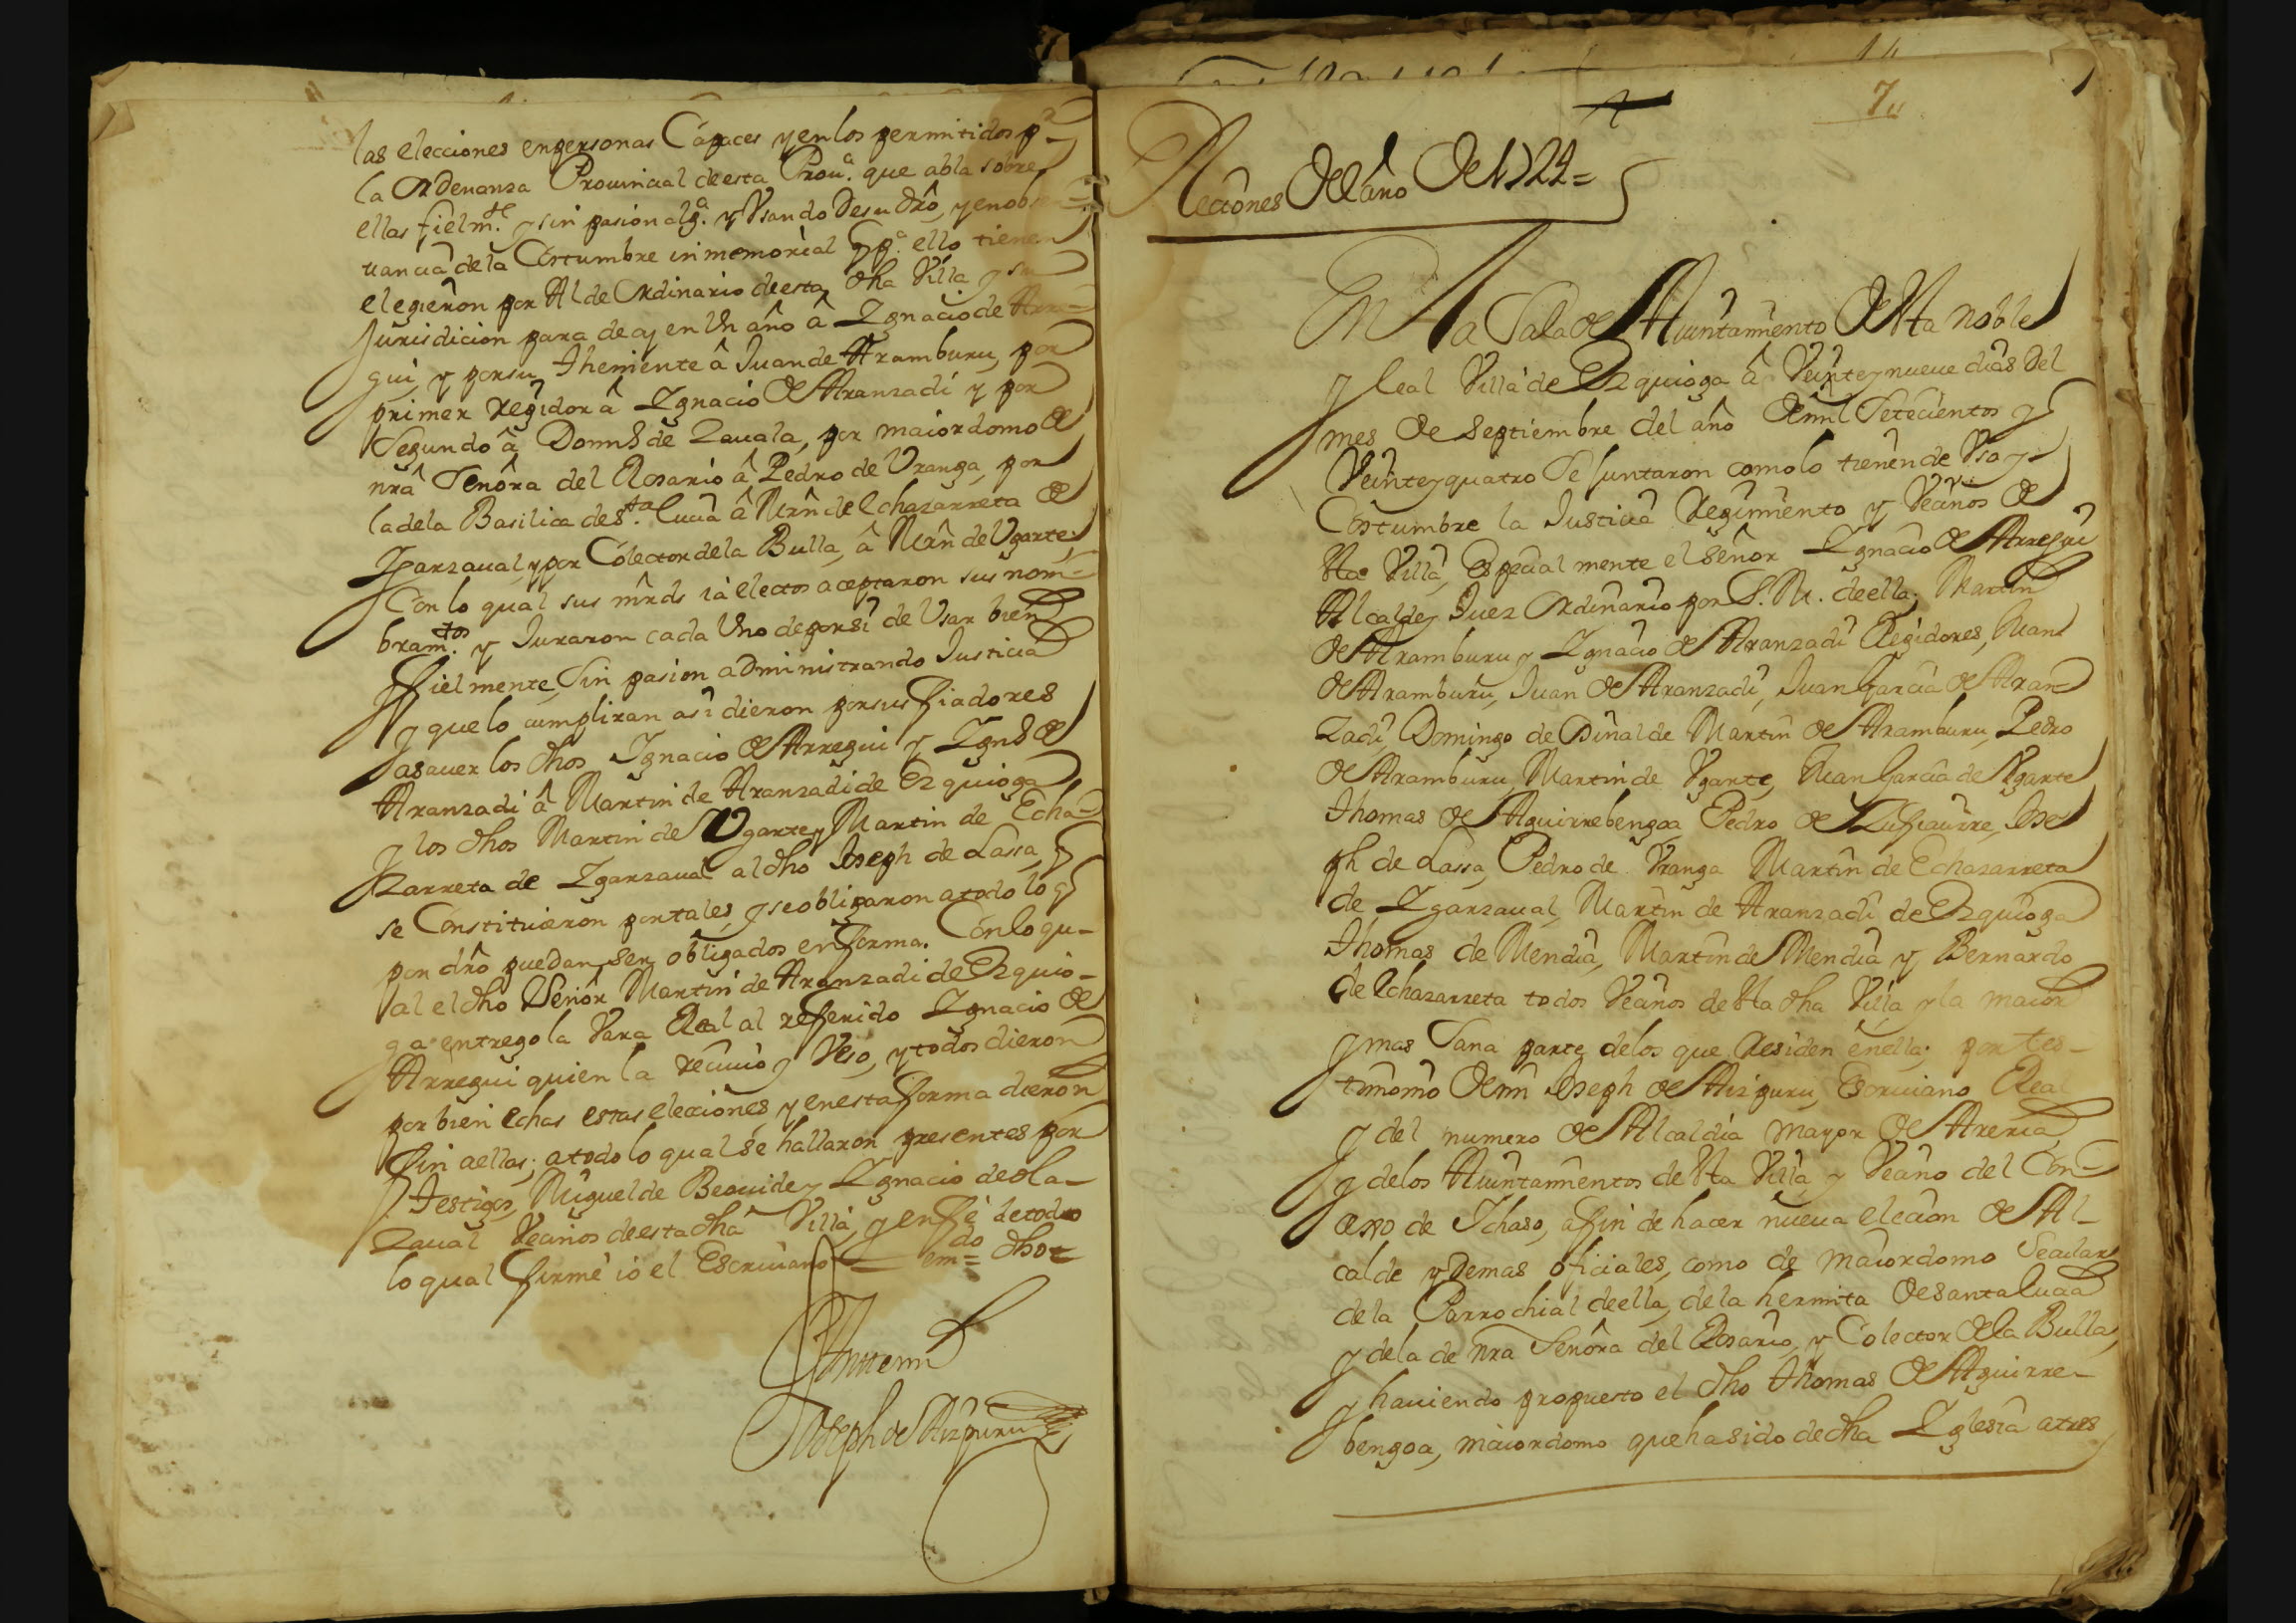 las elecciones en personas Capaces y en los permitidos pr.
la Ordenanza Prouincial de esta Prou.a que abla sobre
ellas fielm.te y sin pasion alg.a y Vsando de su dro, y en obser=
uancia de la Costumbre inmemorial q p.a ello tienen
elegieron por Alde Ordinario de esta dha Villa y su
Jurisdicion para de aj en Vn año â Ygnacio de Arre=
gui, y por su Theniente â Juan de Aramburu, por
primer regidor â Ygnacio de Aranzadi y por
Segundo â Domin.o de Zauala, por maiordomo de
nrâ Señora del Rosario â Pedro de Vranga, por
la de la Basilica de S.ta Lucia â Mrñ de Echazarreta de
Ygarzaual, y por Colector de la Bulla, â Mrñ de Vgarte;
Con lo qual sus mrds ia electos aceptaron sus nom=
bram.tos y Juraron cada Vno de por si de Vsar bien
fielmente, Sin pasion administrando Justicia
y que lo cumpliran asi dieron por sus fiadores
asauer los dhos Ygnacio de Arregui y Ygn.o de
Aranzadi â Martin de Aranzadi de Ezquioga
y los dhos Martin de Vgarte y Martin de Echa=
zarreta de Ygarzaual al dho Joseph de Lassa, q
se Constituieron por tales, y se obligaron a todo lo q
por dro puedan ser obligados en forma. Con lo qu-
al el dho Señor Martin de Aranzadi de Ezquio-
ga entrego la Vara Real al referido Ygnacio de
Arregui quien la reciuio y Veso, y todos dieron
por bien echas estas elecciones, y en esta forma dieron
fin a ellas; a todo lo qual se hallaron presentes por
Testigos, Miguel de Beouide y Ygnacio de Ola-
zaual Vecinos de esta dha Villa, y en fe de todo
lo qual firmé io el Escriuano — em.do = dho =
Ante mi
Joseph de Aizpuru
7
Elecciones Del año De 1724 =
En La Sala de Aiuntamiento De Esta noble
y leal Villa de Ezquioga â Veinte y nueue dias del
mes De septiembre del año De mil Setecientos y
Veinte y quatro Se Juntaron como lo tienen de Vso y
Costumbre la Justicia Regimiento y Vecinos de
Esta Villa, Especialmente el señor Ygnacio de Arregui
Alcalde y Juez Ordinario por S. M. de ella, Martin
de Aramburu y Ygnacio de Aranzadi Regidores, Juan
de Aramburu, Juan de Aranzadi, Juan Garcia de Aran
zadi, Domingo de Minalde Martin de Aramburu, Pedro
de Aramburu, Martin de Vgarte, Juan Garcia de Vgarte
Thomas de Aguirrebengoa Pedro de Zufiaurre, Jose
ph de Lassa, Pedro de Vranga Martin de Echazarreta
de Ygarzaual, Martin de Aranzadi de Ezquioga
Thomas de Mendia, Martin de Mendia y Bernardo
de Echazarreta todos Vecinos de Esta dha Villa y la maior
y mas Sana parte de los que Residen en ella; por tes-
timonio De mi Joseph de Aizpuru, Escriuano Real
y del numero de Alcaldia mayor de Areria,
y de los Aiuntamientos de Esta Villa y Vecino del Con=
cejo de Ichaso, a fin de hacer nueua eleccion de Al-
calde y Demas oficiales, como de maiordomo Secular
de la Parrochial de ella, de la hermita De santa Lucia
y de la de nra Señora del Rosario, y Colector de la Bulla,
y hauiendo propuesto el dho Thomas de Aguirre-
bengoa, maiordomo que ha sido de dha Yglesia a tres